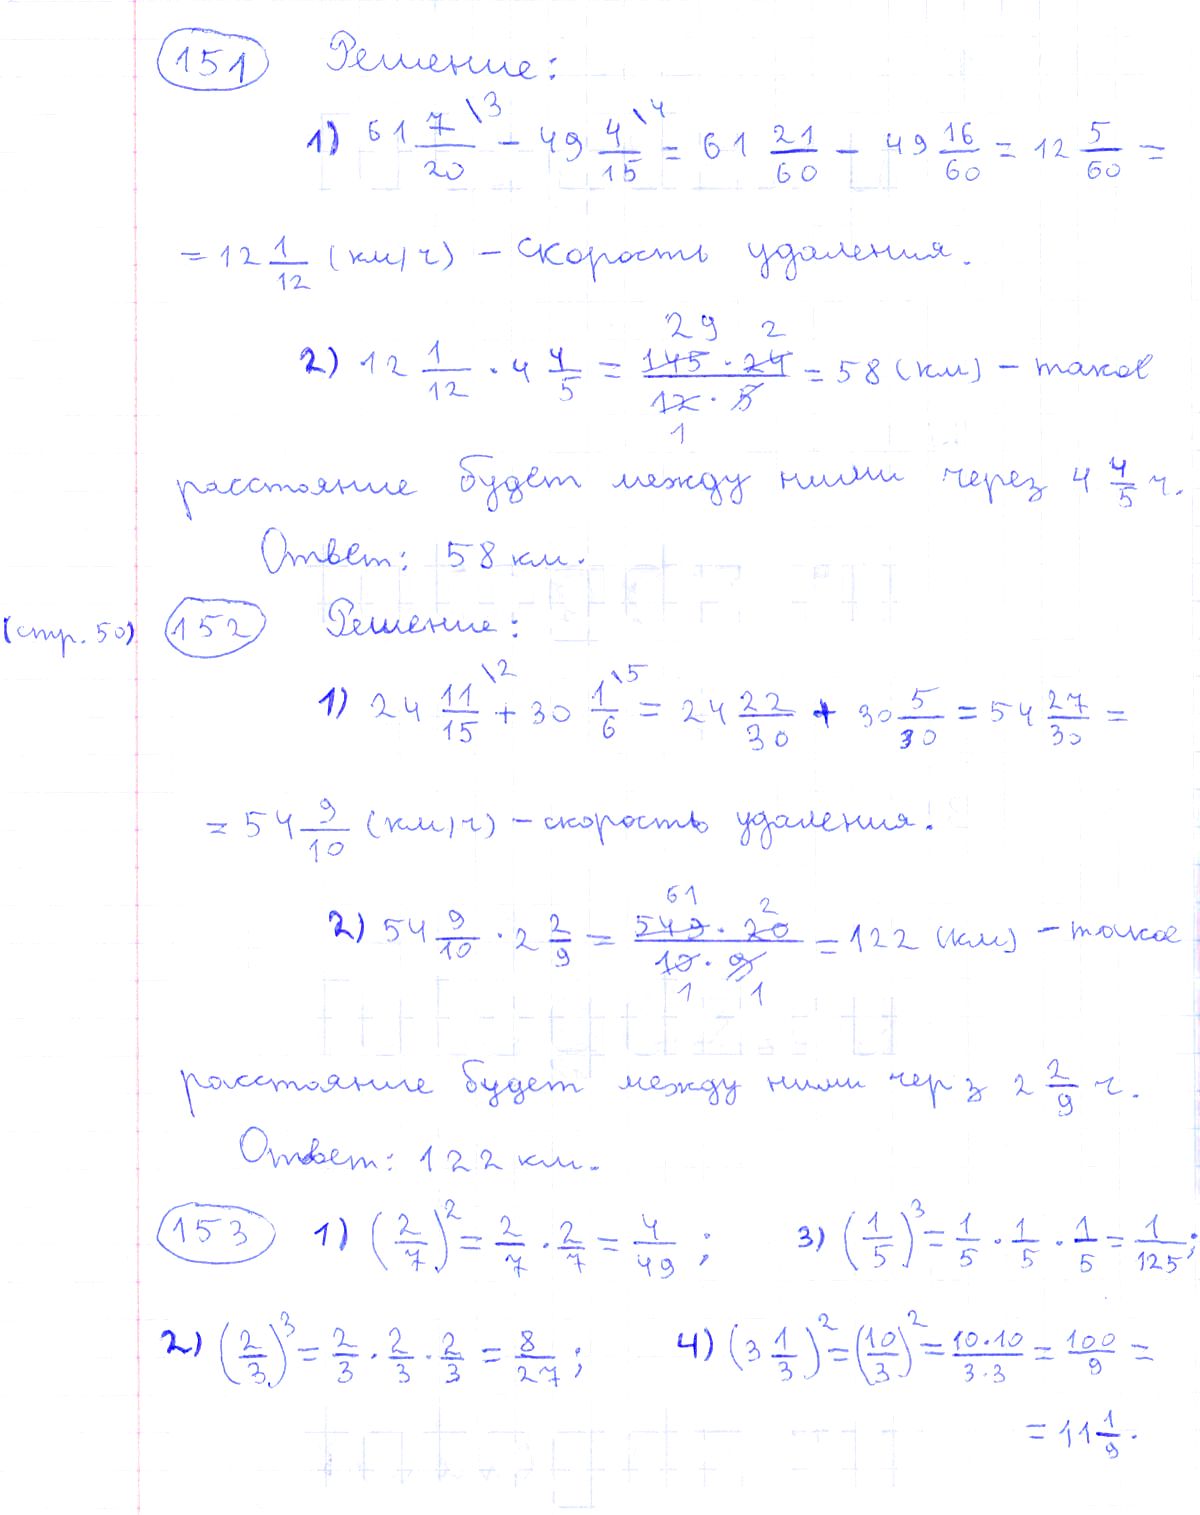 151 Решение:
1) 61 7/20 \3 - 49 4/15 \4 = 61 21/60 - 49 16/60 = 12 5/60 =
= 12 1/12 (км/ч) - скорость удаления.
2) 12 1/12 · 4 4/5 = 145 · 24 / 12 · 5 = 58 (км) - такое
29 2
1
расстояние будет между ними через 4 4/5 ч.
Ответ: 58 км.
(стр. 50) 152 Решение:
1) 24 11/15 \2 + 30 1/6 \5 = 24 22/30 + 30 5/30 = 54 27/30 =
= 54 9/10 (км/ч) - скорость удаления.
2) 54 9/10 · 2 2/9 = 549 · 20 / 10 · 9 = 122 (км) - такое
61 2
1 1
расстояние будет между ними чер з 2 2/9 ч.
Ответ: 122 км.
153 1) (2/7)² = 2/7 · 2/7 = 4/49; 3) (1/5)³ = 1/5 · 1/5 · 1/5 = 1/125;
2) (2/3)³ = 2/3 · 2/3 · 2/3 = 8/27; 4) (3 1/3)² = (10/3)² = 10·10/3·3 = 100/9 =
= 11 1/9.